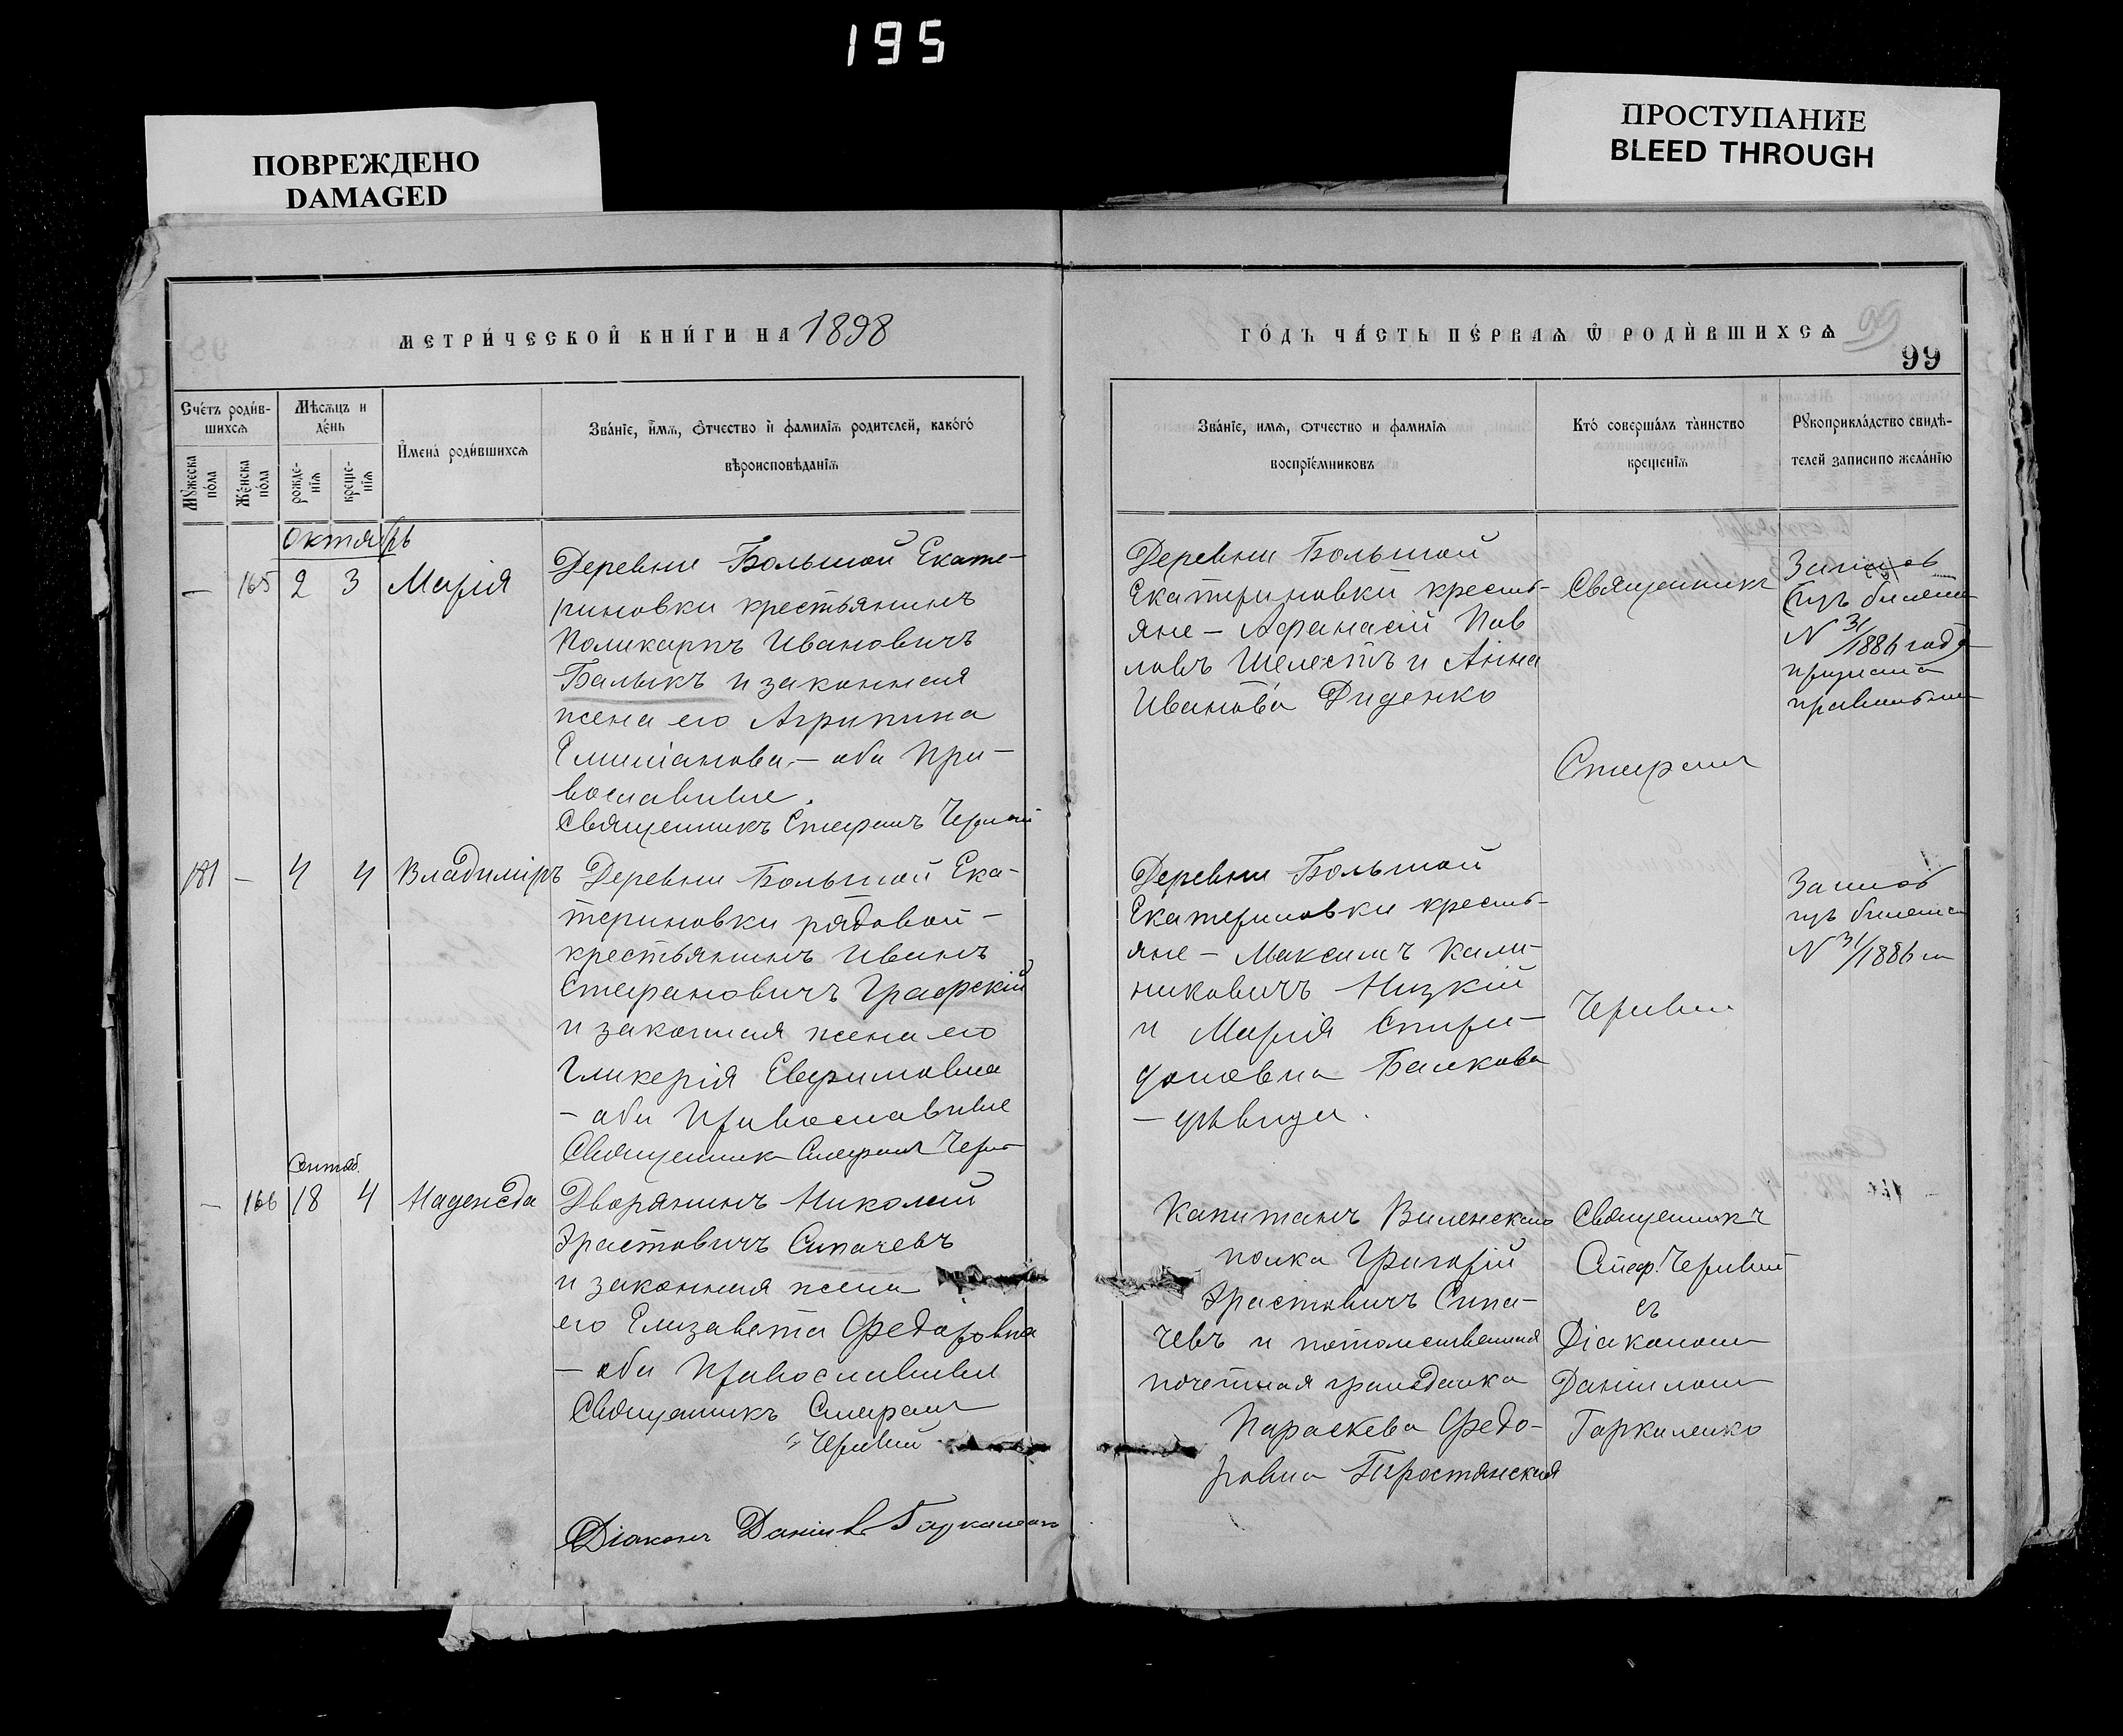 195
ПОВРЕЖДЕНО
DAMAGED
ПРОСТУПАНИЕ
BLEED THROUGH
МЕТРИ́ЧЕСКОЙ КНИ́ГИ НА 1898
ГО́ДЪ ЧА́СТЬ ПЕ́РВАѦ Ѿ РОДИ́ВШИХСѦ
99
Сче́тъ роди́в-
шихсѧ
Мѣсѧцъ и
де́нь
Мꙋ́жеска
по́ла
Же́нска
по́ла
рожде-
нїѧ
креще-
нїѧ
И҆мена̀ роди́вшихсѧ
Зва́нїе, и҆́мѧ, ѻ҆́тчество и҆ фами́лїѧ родителей, како́гѡ
вѣроисповѣданїѧ
Зва́нїе, имѧ, ѻтчество и фамилїѧ
воспрїе́мниковъ
Кто́ соверша́лъ та́инство
креще́нїѧ
Рꙋкоприкла́дство свидѣ-
телей записи по жела́нїю
Октябрь
— 165 2 3 Марія
Деревни Большой Екате-
риновки крестьянинъ
Поликарпъ Ивановичъ
Балыкъ и законная
жена его Агрипина
Емиліанова — оба пра-
вославные.
Священникъ Стефанъ Черный
Деревни Большой
Екатериновки кресть-
яне — Афанасій Пав
ловъ Шелестъ и Анна
Иванова Диденко
Священникъ
Стефанъ
N 31/1886 года
181 — 4 4 Владиміръ
Деревни Большой Ека-
териновки рядовой —
крестьянинъ Иванъ
Стефановичъ Графскій
и законная жена его
Гликерія Евфимовна
— оба Православные
Священникъ Стефанъ
Деревни Большой
Екатериновки кресть-
яне — Максимъ Кали-
никовичъ Низкій
и Марія Спири-
доновна
— дѣвица.
N 31/1886
Сентяб.
— 166 18 4 Надежда
Дворянинъ Николай
Эрастовичъ Сипачевъ
и законная жена
его Елизавета Федоровна
— оба Православные
Священникъ Стефанъ
Діаконъ Даніилъ
Капитанъ Виленскаго
полка Григорій
Эрастовичъ Сипа-
чевъ и потомственная
почетная гражданка
Параскева Федо-
ровна Тростянская
Священникъ
Стеф.
съ
Діакономъ
Даніиломъ